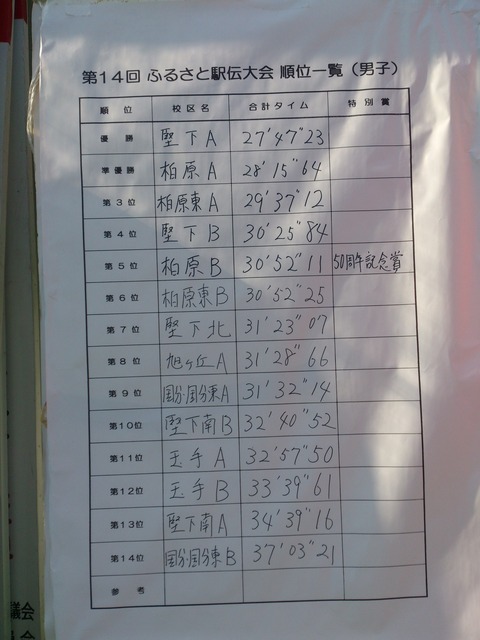 第14回 ふるさと駅伝大会 順位一覧（男子）
順位 校区名 合計タイム 特別賞
優勝 堅下A 27'47"23
準優勝 柏原A 28'15"64
第3位 柏原東A 29'37"12
第4位 堅下B 30'25"84
第5位 柏原B 30'52"11 50周年記念賞
第6位 柏原東B 30'52"25
第7位 堅下北 31'23"07
第8位 旭ヶ丘A 31'28"66
第9位 国分・国分東A 31'32"14
第10位 堅下南B 32'40"52
第11位 玉手A 32'57"50
第12位 玉手B 33'39"61
第13位 堅下南A 34'39"16
第14位 国分・国分東B 37'03"21
参考
議会